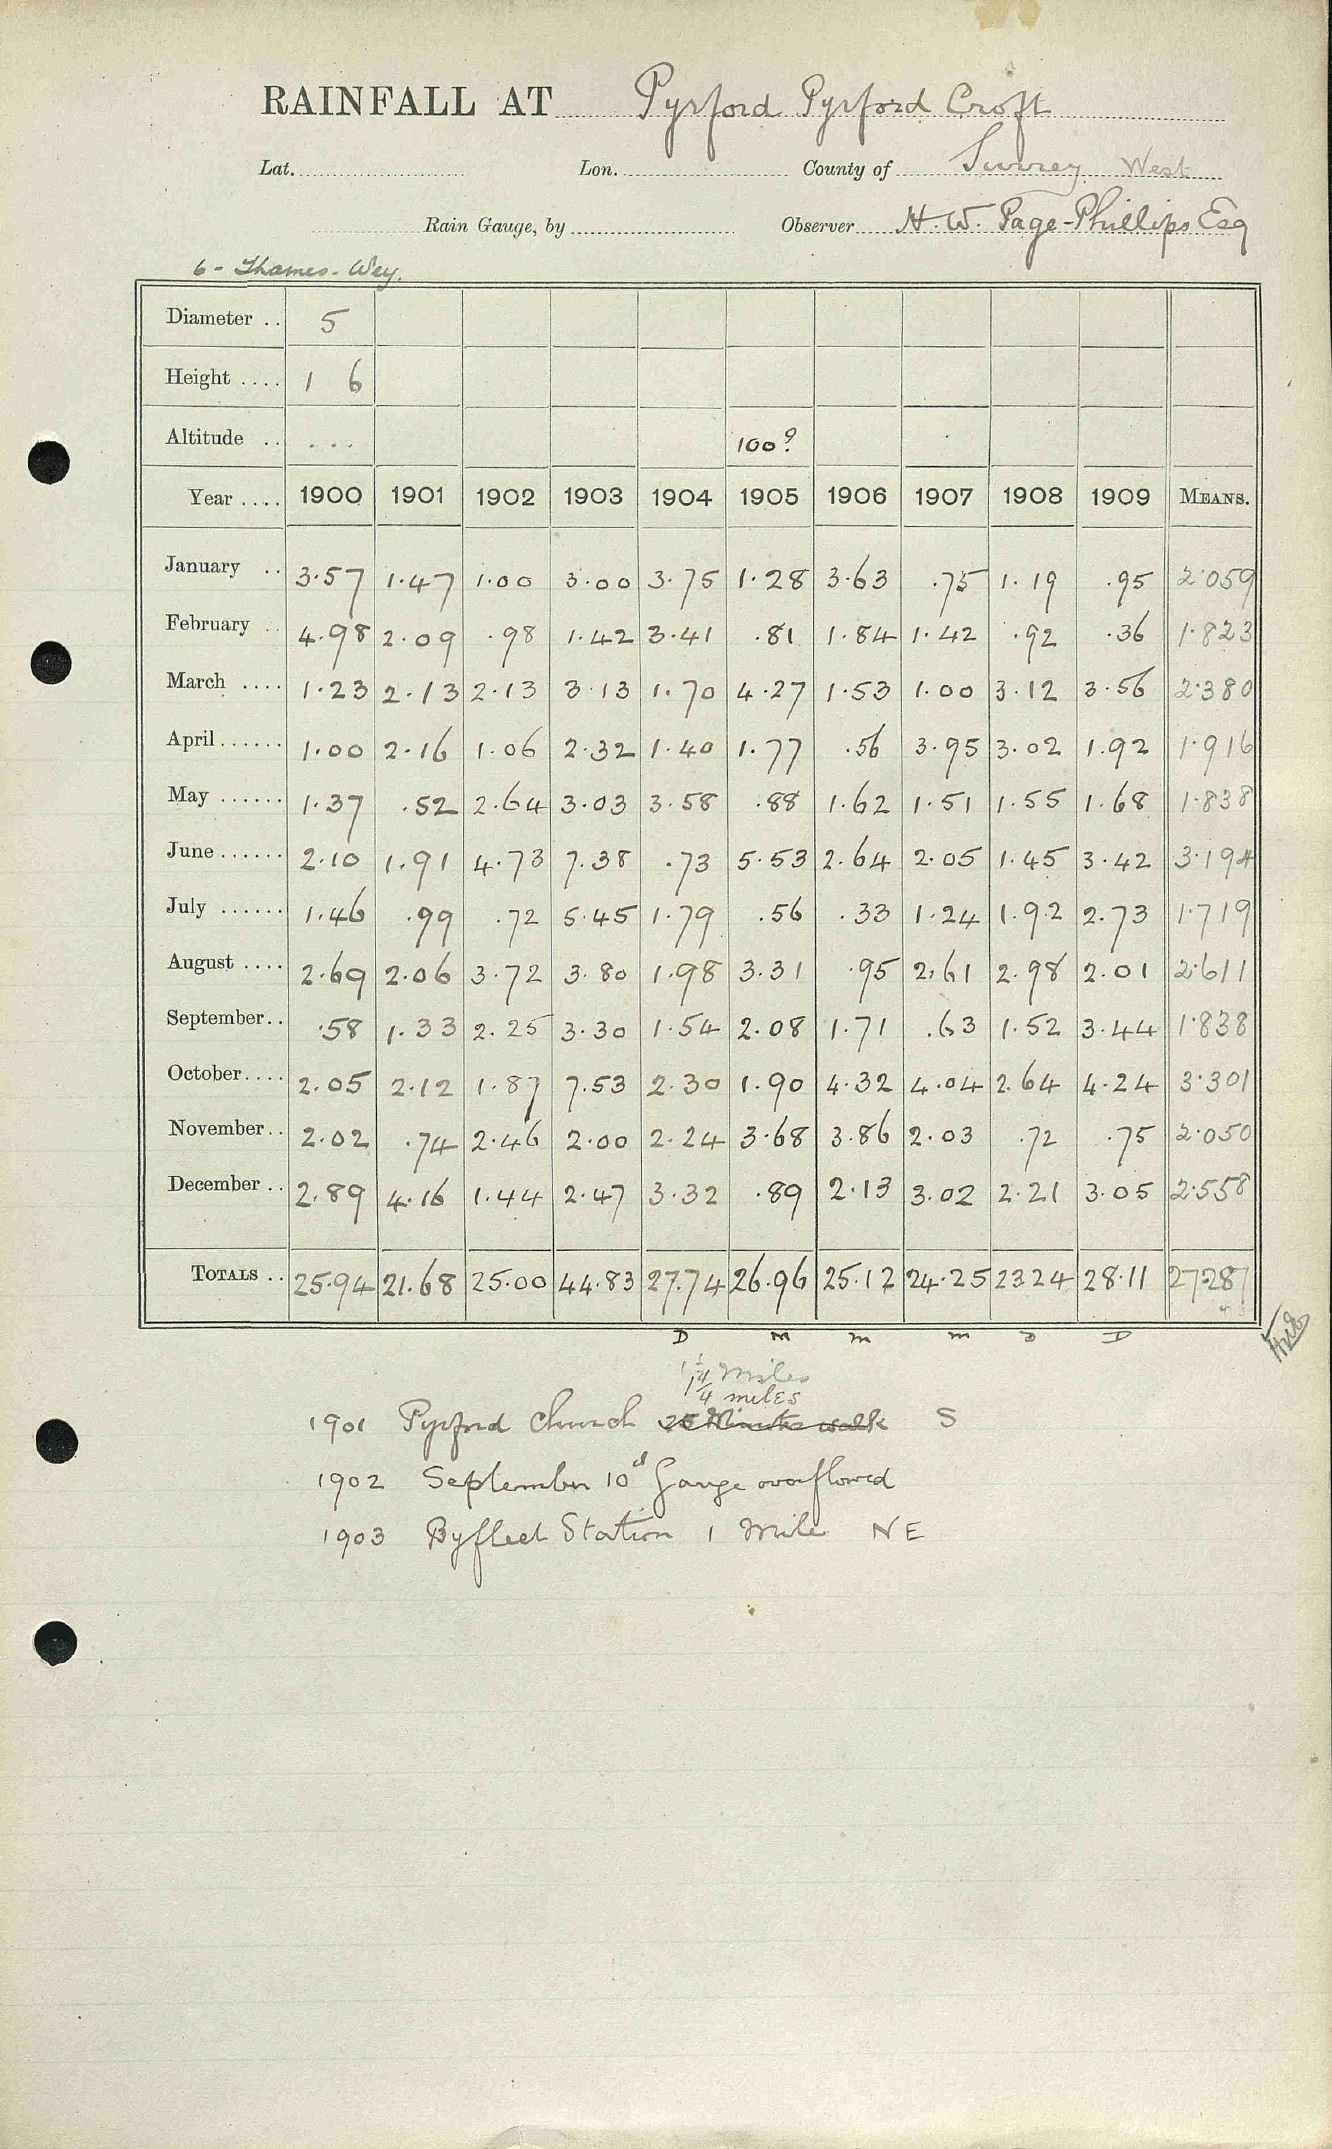 RAINFALL AT Pyrford Pyrford Croft
Lat. Lon. County of Surrey West
Rain Gauge, by Observer H. W. Page-Phillips Esq
6 - Thames - Wey.
Diameter .. 5
Height .... 1 6
Altitude .. ... 100?
Year .... 1900 1901 1902 1903 1904 1905 1906 1907 1908 1909 MEANS.
January .. 3.57 1.47 1.00 3.00 3.75 1.28 3.63 .75 1.19 .95 2.059
February .. 4.98 2.09 .98 1.42 3.41 .81 1.84 1.42 .92 .36 1.823
March .... 1.23 2.13 2.13 3.13 1.70 4.27 1.53 1.00 3.12 3.56 2.380
April ...... 1.00 2.16 1.06 2.32 1.40 1.77 .56 3.95 3.02 1.92 1.916
May ...... 1.37 .52 2.64 3.03 3.58 .88 1.62 1.51 1.55 1.68 1.838
June ...... 2.10 1.91 4.73 7.38 .73 5.53 2.64 2.05 1.45 3.42 3.194
July ...... 1.46 .99 .72 5.45 1.79 .56 .33 1.24 1.92 2.73 1.719
August .... 2.69 2.06 3.72 3.80 1.98 3.31 .95 2.61 2.98 2.01 2.611
September .. .58 1.33 2.25 3.30 1.54 2.08 1.71 .63 1.52 3.44 1.838
October .... 2.05 2.12 1.87 7.53 2.30 1.90 4.32 4.04 2.64 4.24 3.301
November .. 2.02 .74 2.46 2.00 2.24 3.68 3.86 2.03 .72 .75 2.050
December .. 2.89 4.16 1.44 2.47 3.32 .89 2.13 3.02 2.21 3.05 2.558
TOTALS .. 25.94 21.68 25.00 44.83 27.74 26.96 25.12 24.25 23.24 28.11 27.287
D M m m D D
1 1/4 Miles
1 1/4 miles
1901 Pyrford Church 25 Minutes walk S
1902 September 10th Gauge overflowed
1903 Byfleet Station 1 Mile NE